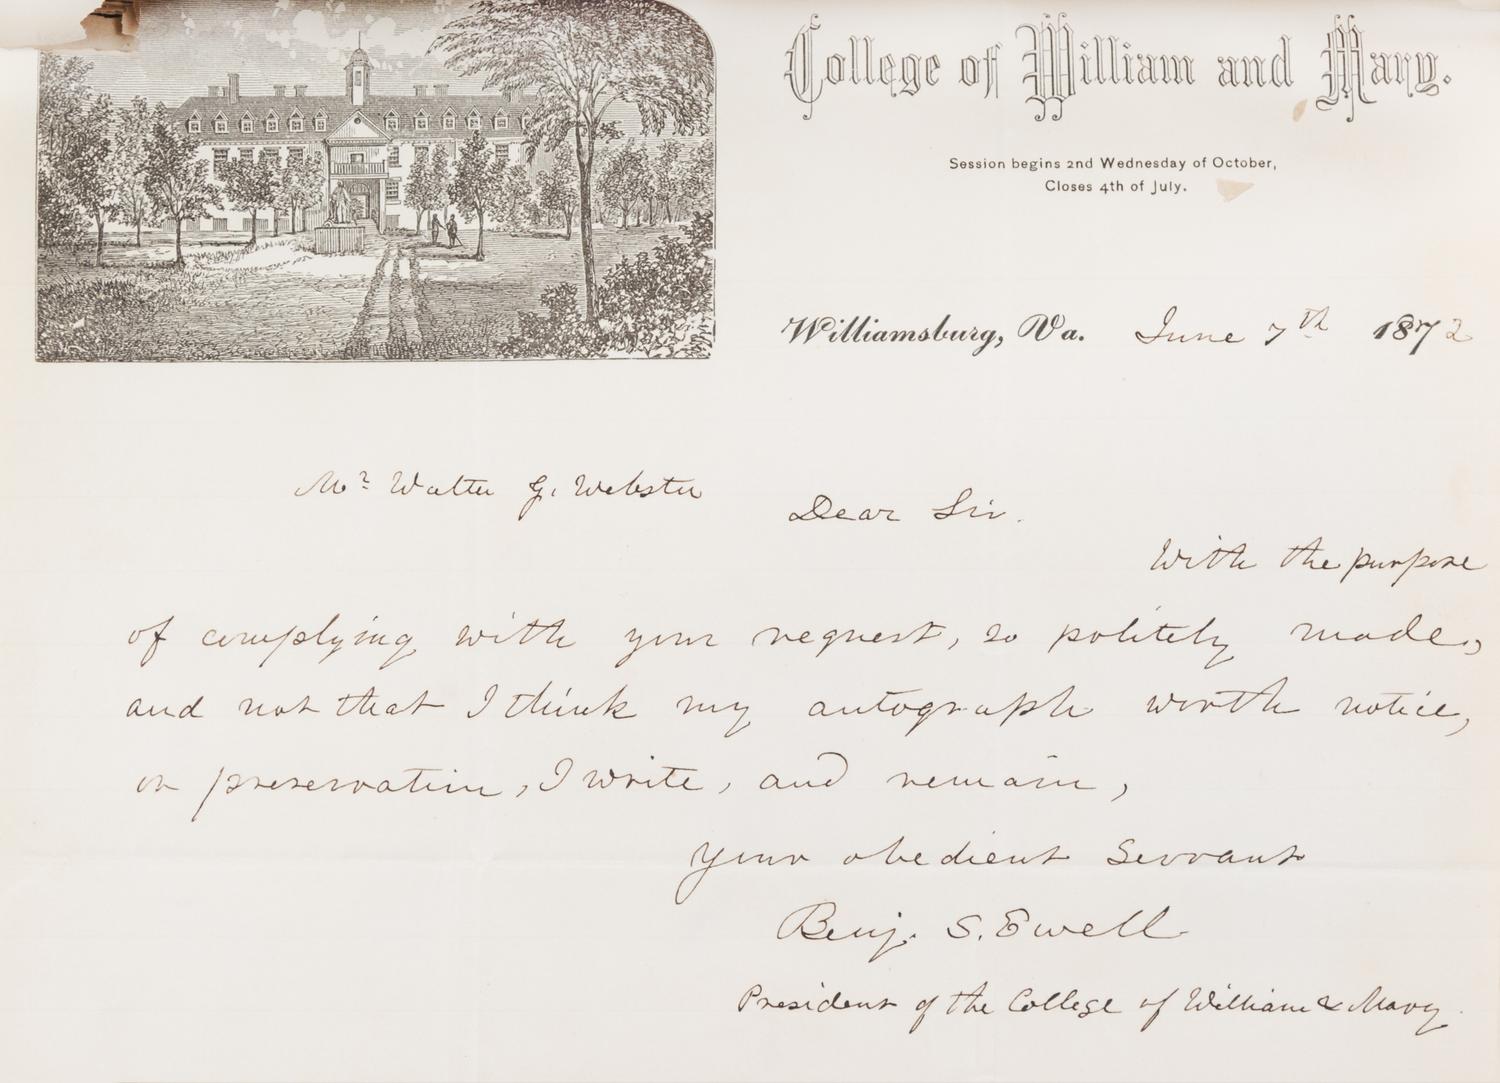 College of William and Mary.
Session begins 2nd Wednesday of October,
Closes 4th of July.
Williamsburg, Va. June 7th 1872
Mr Walter G. Webster
Dear Sir.
With the purpose
of complying with your request, so politely made,
and not that I think my autograph worth notice,
or preservation, I write, and remain,
Your obedient Servant
Benj. S. Ewell
President of the College of William & Mary.